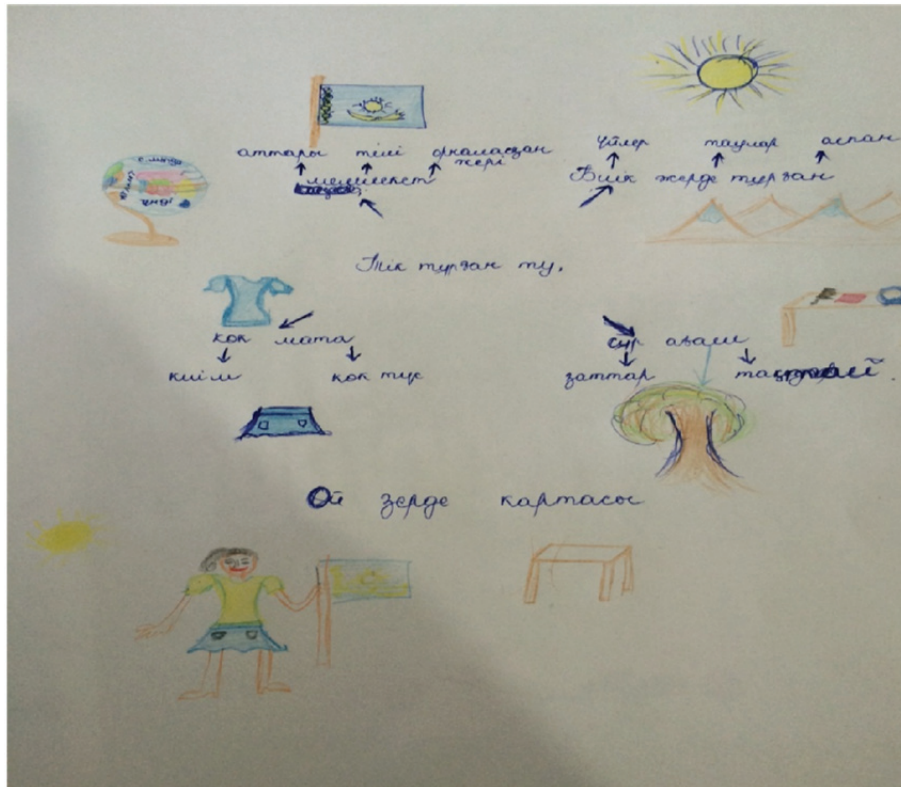 аттары тілі орналасқан
жері
мемлекет
үйлер таулар аспан
Биік жерде тұрған
Тік тұрған ту,
көк мата
киім көк түс
сыр ағаш
заттар
Ой зерде картасы